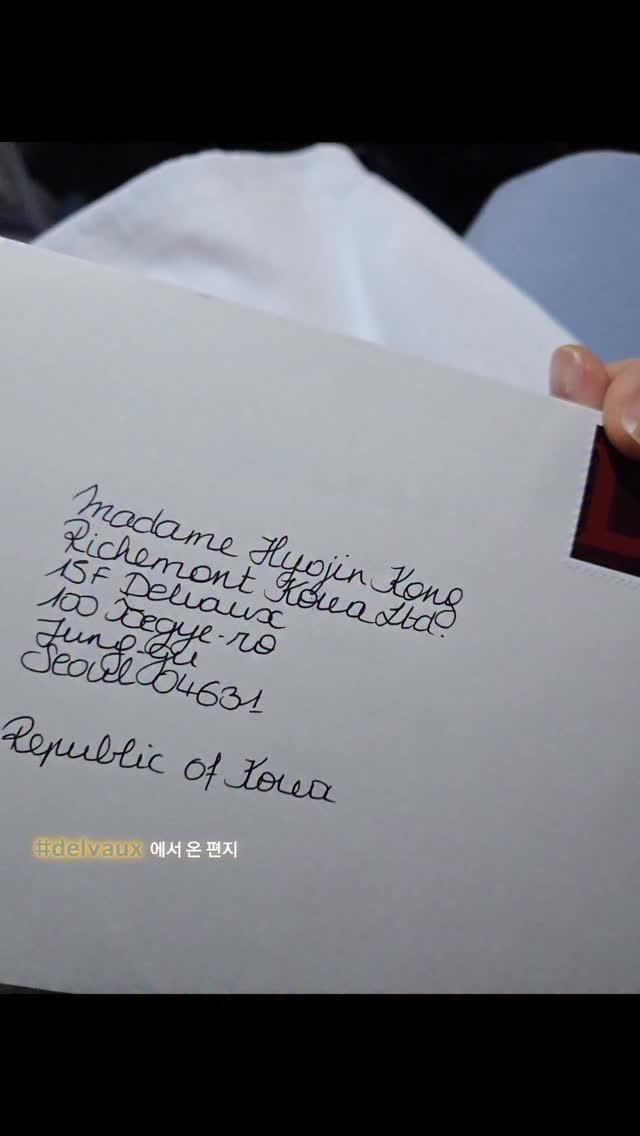 Madame Hyojin Kong
Richemont Korea Ltd.
15F Delvaux
100 Toegye-ro
Jung-Gu
Seoul 04631
Republic of Korea
#delvaux 에서 온 편지